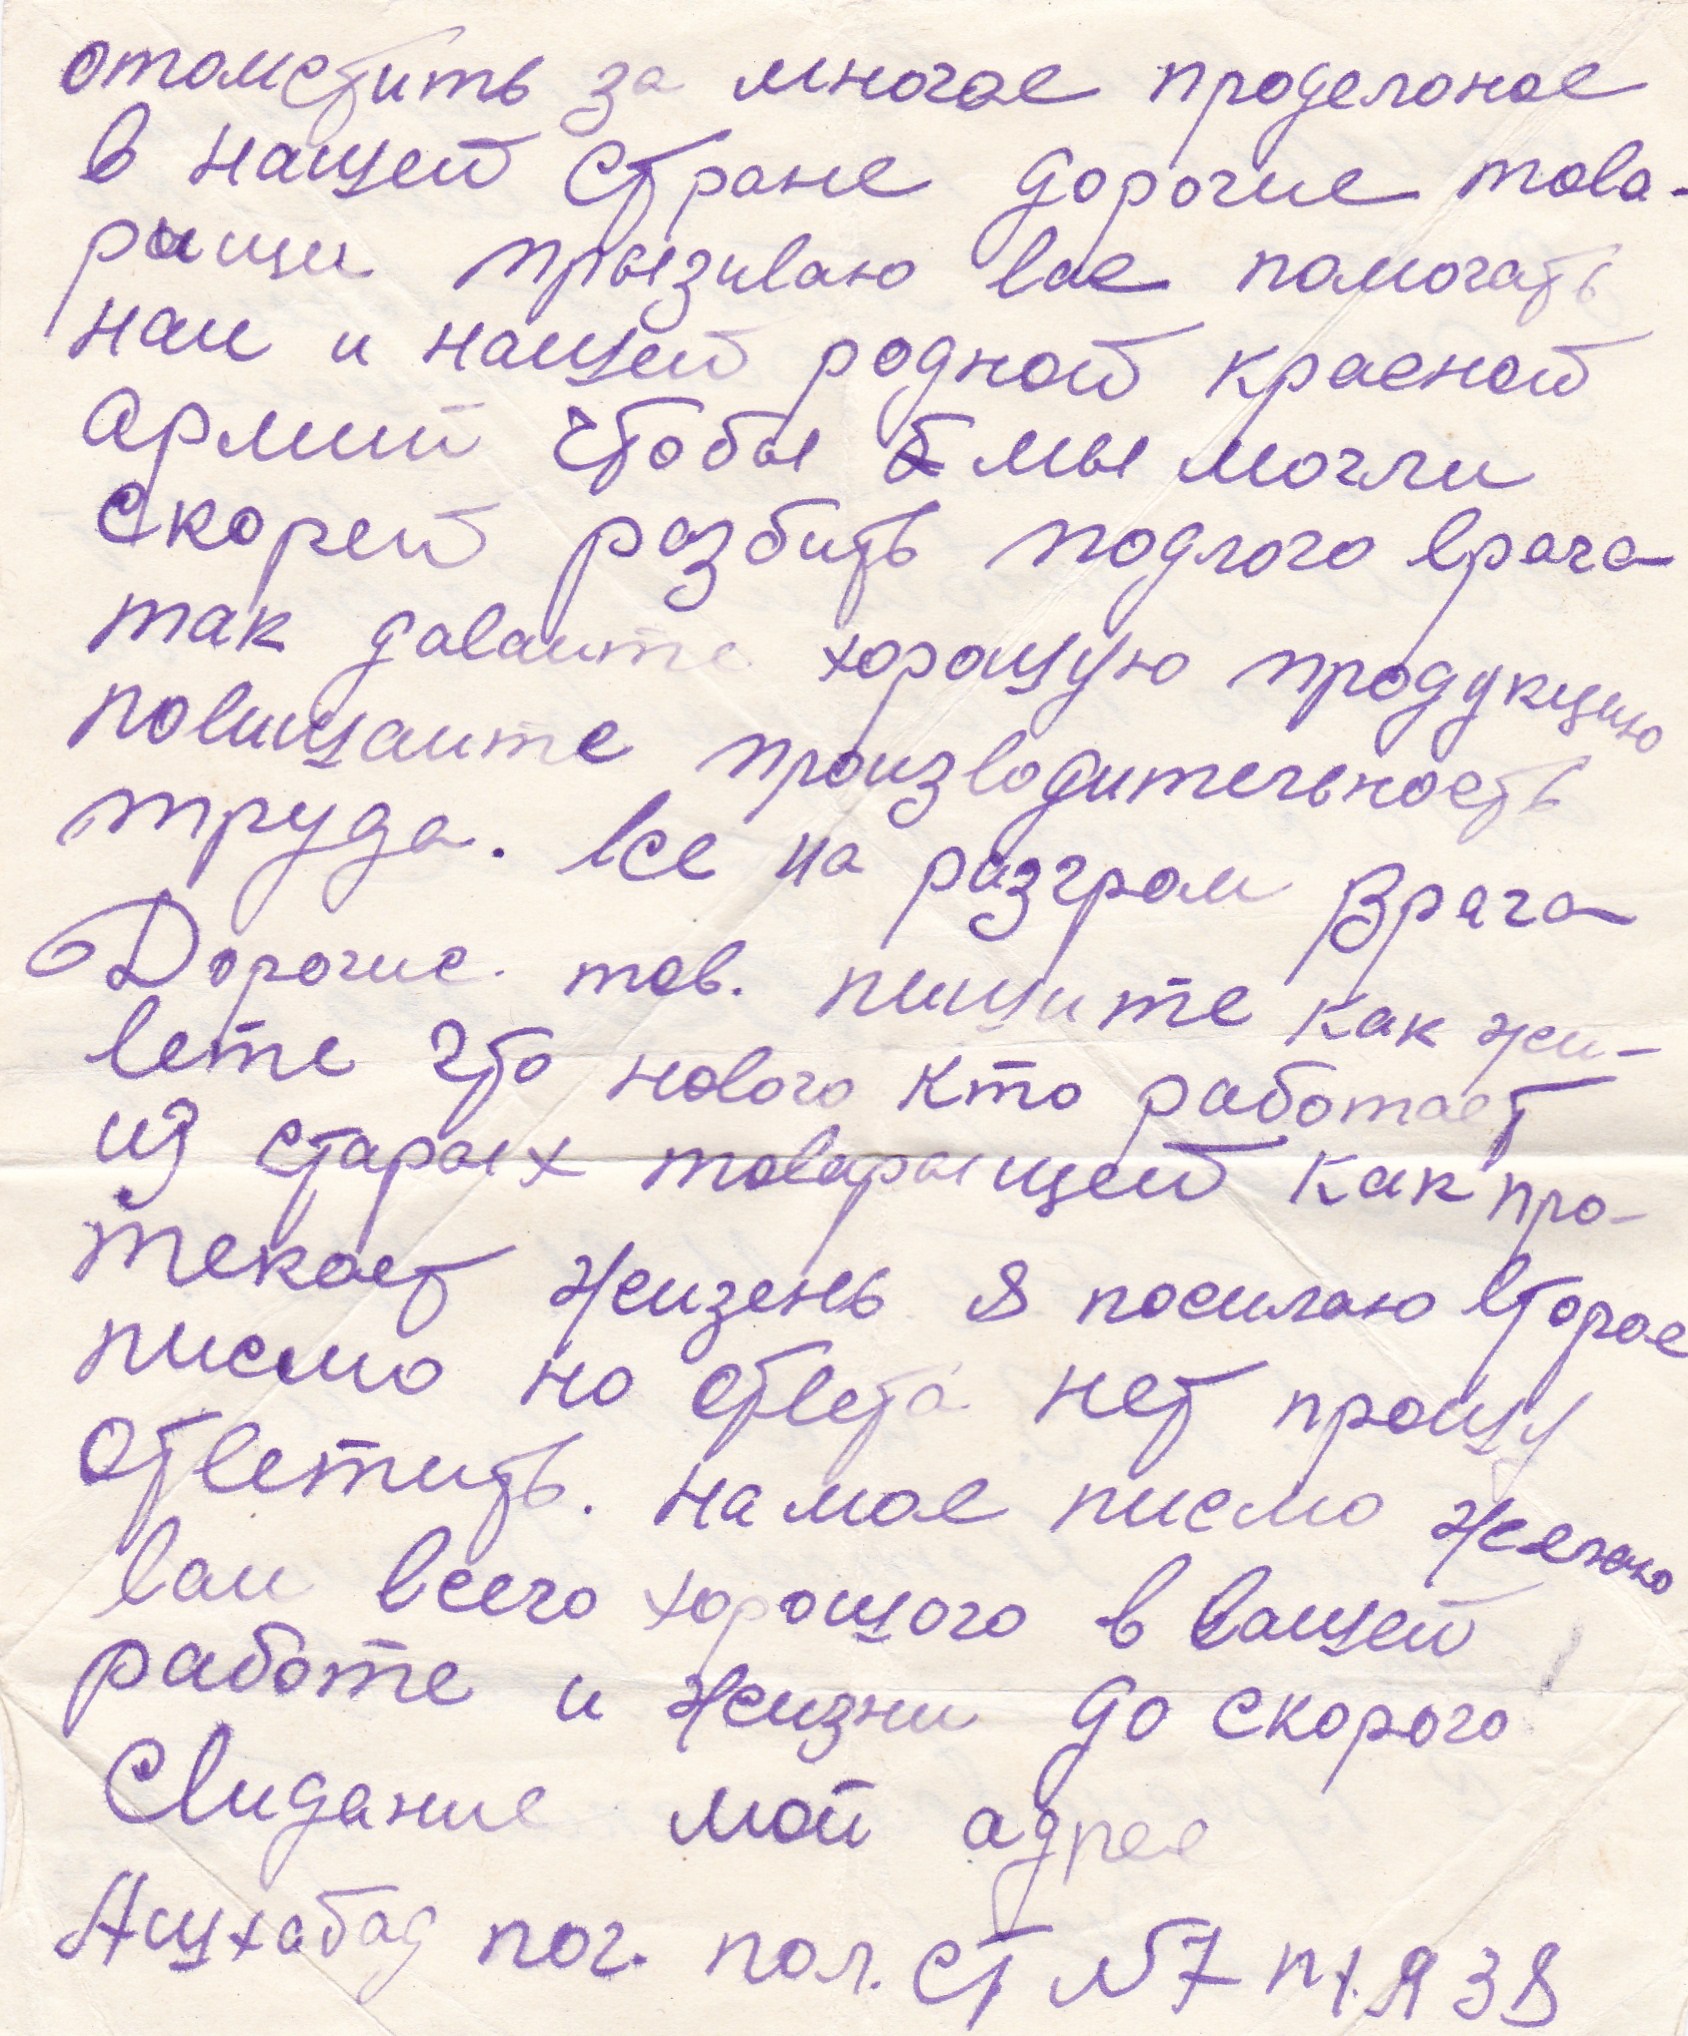 отомстить за многое проделоное
в нашей стране дорогие това-
рыщи прызиваю вас помогать
нам и нашей родной красной
армий чтобы мы могли
скорей разбить подлого врага
так даваите хорошую продукцию
повишаите производительность
труда. все на разгром врага
Дорогие тов. пишите как жи-
вете что нового кто работает
из старых товарыщей как про-
текает жизень я посилаю второе
писмо но ответа нет прошу
ответить. на мое писмо желаю
вам всего хорошого в вашей
работе и жизни до скорого
свидание мой адрес
Ашхабад пог. пол. ст №7 п/.я 38